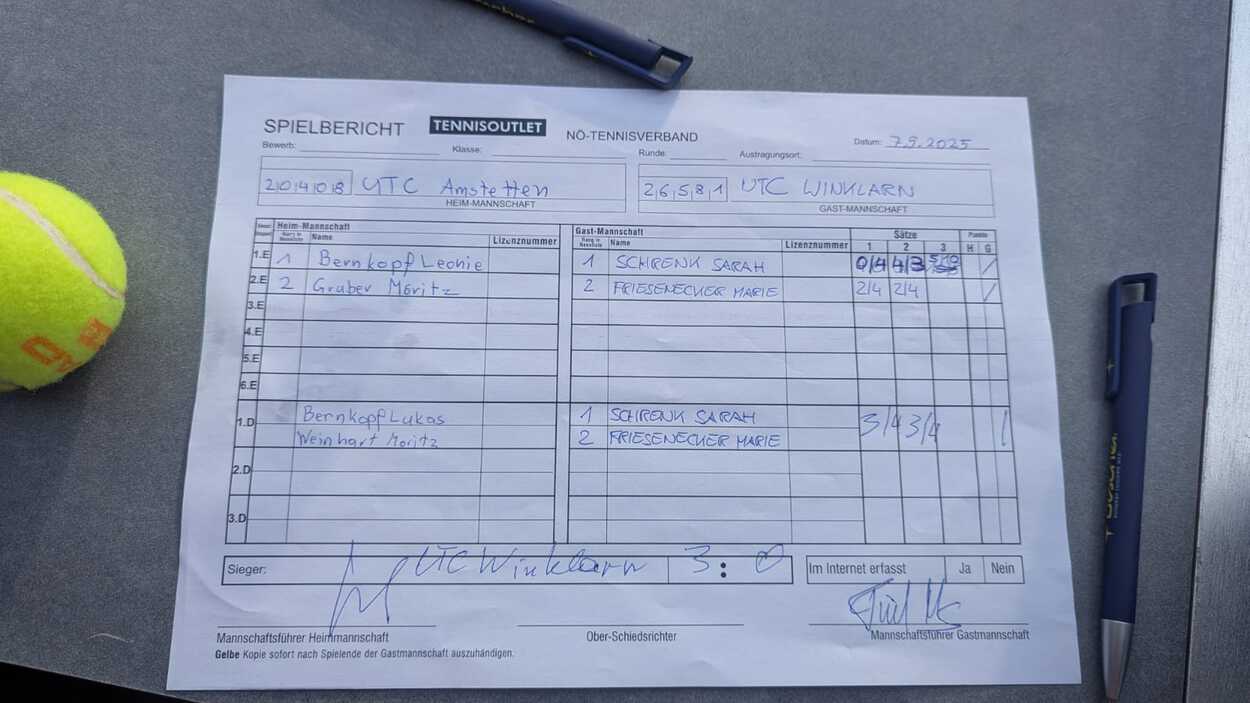 SPIELBERICHT TENNISOUTLET NÖ-TENNISVERBAND Datum: 7.9.2025
Bewerb: Klasse: Runde: Austragungsort:
20408 UTC Amstetten 26581 UTC WINKLARN
HEIM-MANNSCHAFT GAST-MANNSCHAFT
Heim-Mannschaft Gast-Mannschaft Sätze Punkte
Rang in Nennliste Name Lizenznummer Rang in Nennliste Name Lizenznummer 1 2 3 H G
1.E 1 Bernkopf Leonie 1 SCHRENK SARAH 0/4 4/3 5/10 /
2.E 2 Gruber Moritz 2 FRIESENECHER MARIE 2/4 2/4 /
3.E
4.E
5.E
6.E
1.D Bernkopf Lukas 1 SCHRENK SARAH 3/4 3/4 |
Weinhart Moritz 2 FRIESENECHER MARIE
2.D
3.D
Sieger: UTC Winklarn 3:0 Im Internet erfasst Ja Nein
Mannschaftsführer Heimmannschaft Ober-Schiedsrichter Mannschaftsführer Gastmannschaft
Gelbe Kopie sofort nach Spielende der Gastmannschaft auszuhändigen.